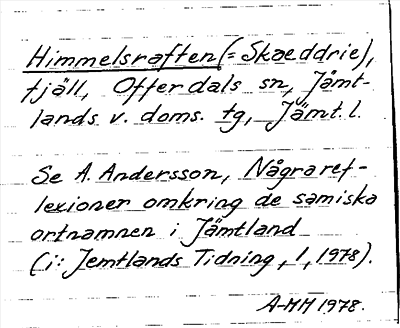 Himmelsraften (= Skaeddrie),
fjäll, Offerdals sn, Jämt-
lands v. doms. tg, Jämt. l.
Se A. Andersson, Några ref-
lexioner omkring de samiska
ortnamnen i Jämtland
(i: Jemtlands Tidning, 1, 1978).
A-MH 1978.